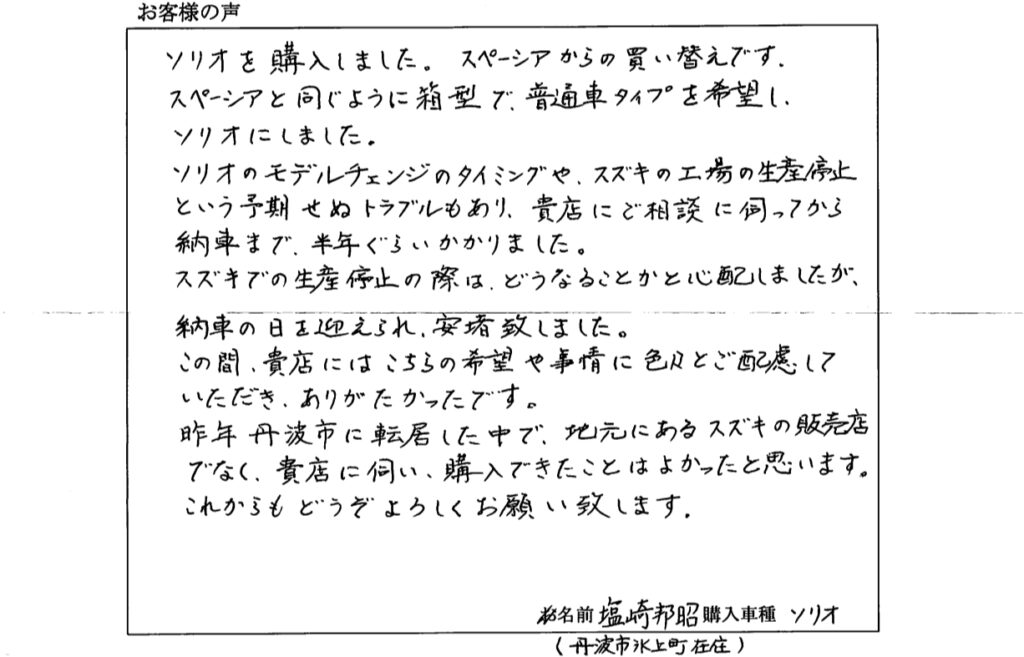 お客様の声
ソリオを購入しました。スペーシアからの買い替えです.
スペーシアと同じように箱型で、普通車タイプを希望し、
ソリオにしました。
ソリオのモデルチェンジのタイミングや、スズキの工場の生産停止
という予期せぬトラブルもあり、貴店にご相談に伺ってから
納車まで、半年ぐらいかかりました。
スズキでの生産停止の際は、どうなることかと心配しましたが、
納車の日を迎えられ、安堵致しました。
この間、貴店にはこちらの希望や事情に色々とご配慮して
いただき、ありがたかったです。
昨年丹波市に転居した中で、地元にあるスズキの販売店
でなく、貴店に伺い、購入できたことはよかったと思います。
これからもどうぞよろしくお願い致します.
お名前 塩崎邦昭 購入車種 ソリオ
(丹波市氷上町在住)